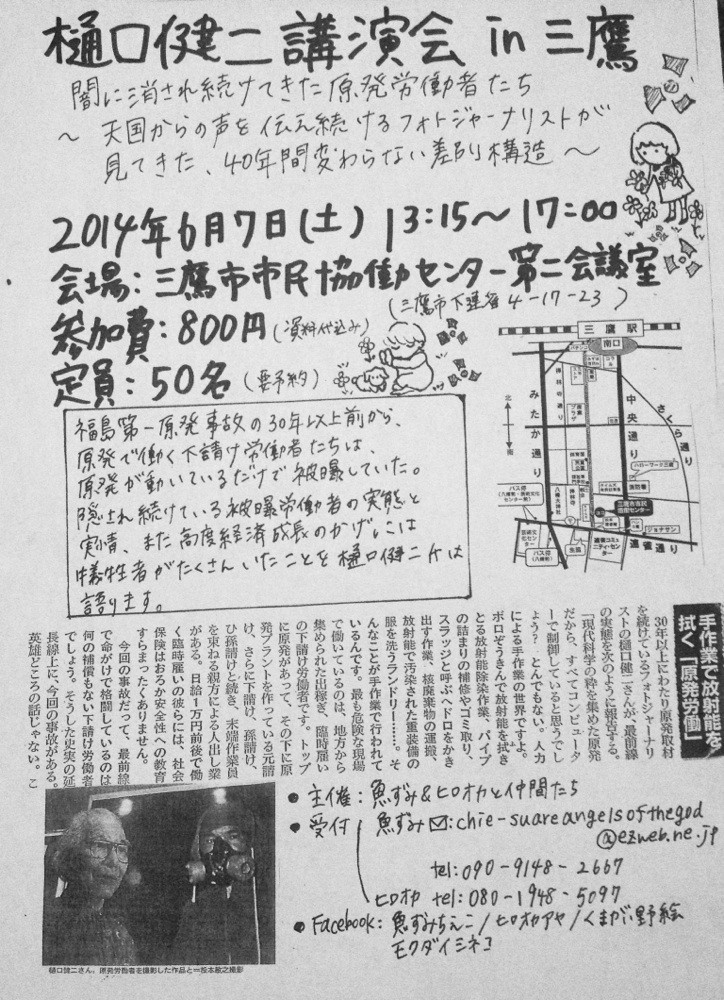 樋口健二講演会 in 三鷹
闇に消され続けてきた原発労働者たち
～ 天国からの声を伝え続けるフォトジャーナリストが
見てきた、40年間変わらない差別構造 ～
2014年6月7日(土) 13:15～17:00
会場:三鷹市市民協働センター第二会議室
(三鷹市下連雀4-17-23)
参加費:800円(資料代込み)
定員:50名(要予約)
福島第一原発事故の30年以上前から、
原発で働く下請け労働者たちは、
原発が動いているだけで被曝していた。
隠され続けている被曝労働者の実態と
実情、また高度経済成長のかげには
犠牲者がたくさんいたことを樋口健二氏は
語ります。
三鷹駅
南口
北
南
みたか通り
中央通り
さくら通り
連雀通り
ハローワーク三鷹
消防署
三鷹市市民
協働センター
ジョナサン
バス停
手作業で放射能を
拭く「原発労働」
30年以上にわたり原発取材
を続けているフォトジャーナリ
ストの樋口健二さんが、最前線
の実態を次のように報告する。
「現代科学の粋を集めた原発
だから、すべてコンピュータ
ーで制御していると思うでし
ょう？ とんでもない。人力
による手作業の世界ですよ。
ボロぞうきんで放射能を拭き
とる放射能除染作業、パイプ
の詰まりの補修やゴミ取り、
スラッジと呼ぶヘドロをかき
出す作業、核廃棄物の運搬、
放射能で汚染された重装備の
服を洗うランドリー……。そ
んなことが手作業で行われて
いるんです。最も危険な現場
で働いているのは、地方から
集められた出稼ぎ、臨時雇い
の下請け労働者です。トップ
に原発があって、その下に原
発プラントを作っている元請
け、さらに下請け、孫請け、
ひ孫請けと続き、末端作業員
を束ねる親方による人出し業
がある。日給1万円前後で働
く臨時雇いの彼らには、社会
保険はおろか安全性への教育
すらまったくありません。
今回の事故だって、最前線
で命がけで格闘しているのは
何の補償もない下請け労働者
でしょう。そうした史実の延
長線上に、今回の事故がある。
英雄どころの話じゃない。こ
• 主催:魚ずみ&ヒロオカと仲間たち
• 受付 魚ずみ✉:chie-suareangelsofthegod
@ezweb.ne.jp
tel:090-9148-2667
ヒロオカ tel:080-1948-5097
• Facebook:魚ずみちえこ/ヒロオカアヤ/くまがい野絵
モクダイシネコ
樋口健二さん。原発労働者を撮影した作品と=投本敏之撮影